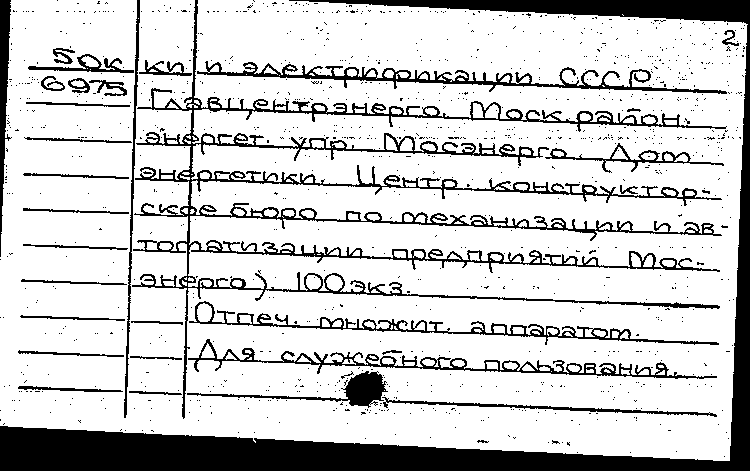 2
50к ки и электрификации СССР.
6975 Главцентрэнерго. Моск. район.
энергет. упр. Мосэнерго. Дом
энергетики. Центр. конструктор-
ское бюро по механизации и ав-
томатизации предприятий Мос-
энерго). 100 экз.
Отпеч. множит. аппаратом.
Для служебного пользования.